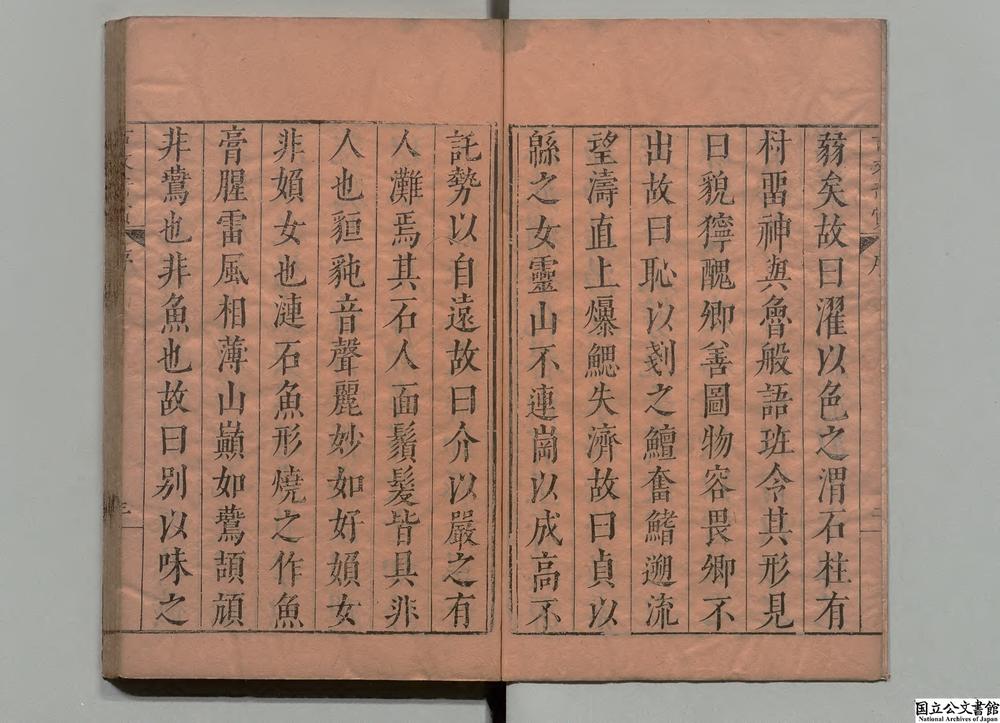 蒻矣故曰濯以色之渭石柱有
村畱神與魯般語班令其形見
曰貌獰醜卿善圖物容畏卿不
出故曰恥以剗之鱣奮鰭遡流
望濤直上爆鰓失濟故曰貞以
緜之女靈山不連崗以成高不
託勢以自遠故曰介以嚴之有
人灘焉其石人面鬚髮皆具非
人也豠豘音聲麗妙如好媍女
非媍女也漣石魚形燒之作魚
膏腥雷風相薄山巓如鷰頡頏
非鷰也非魚也故曰别以味之
国立公文書館
National Archives of Japan